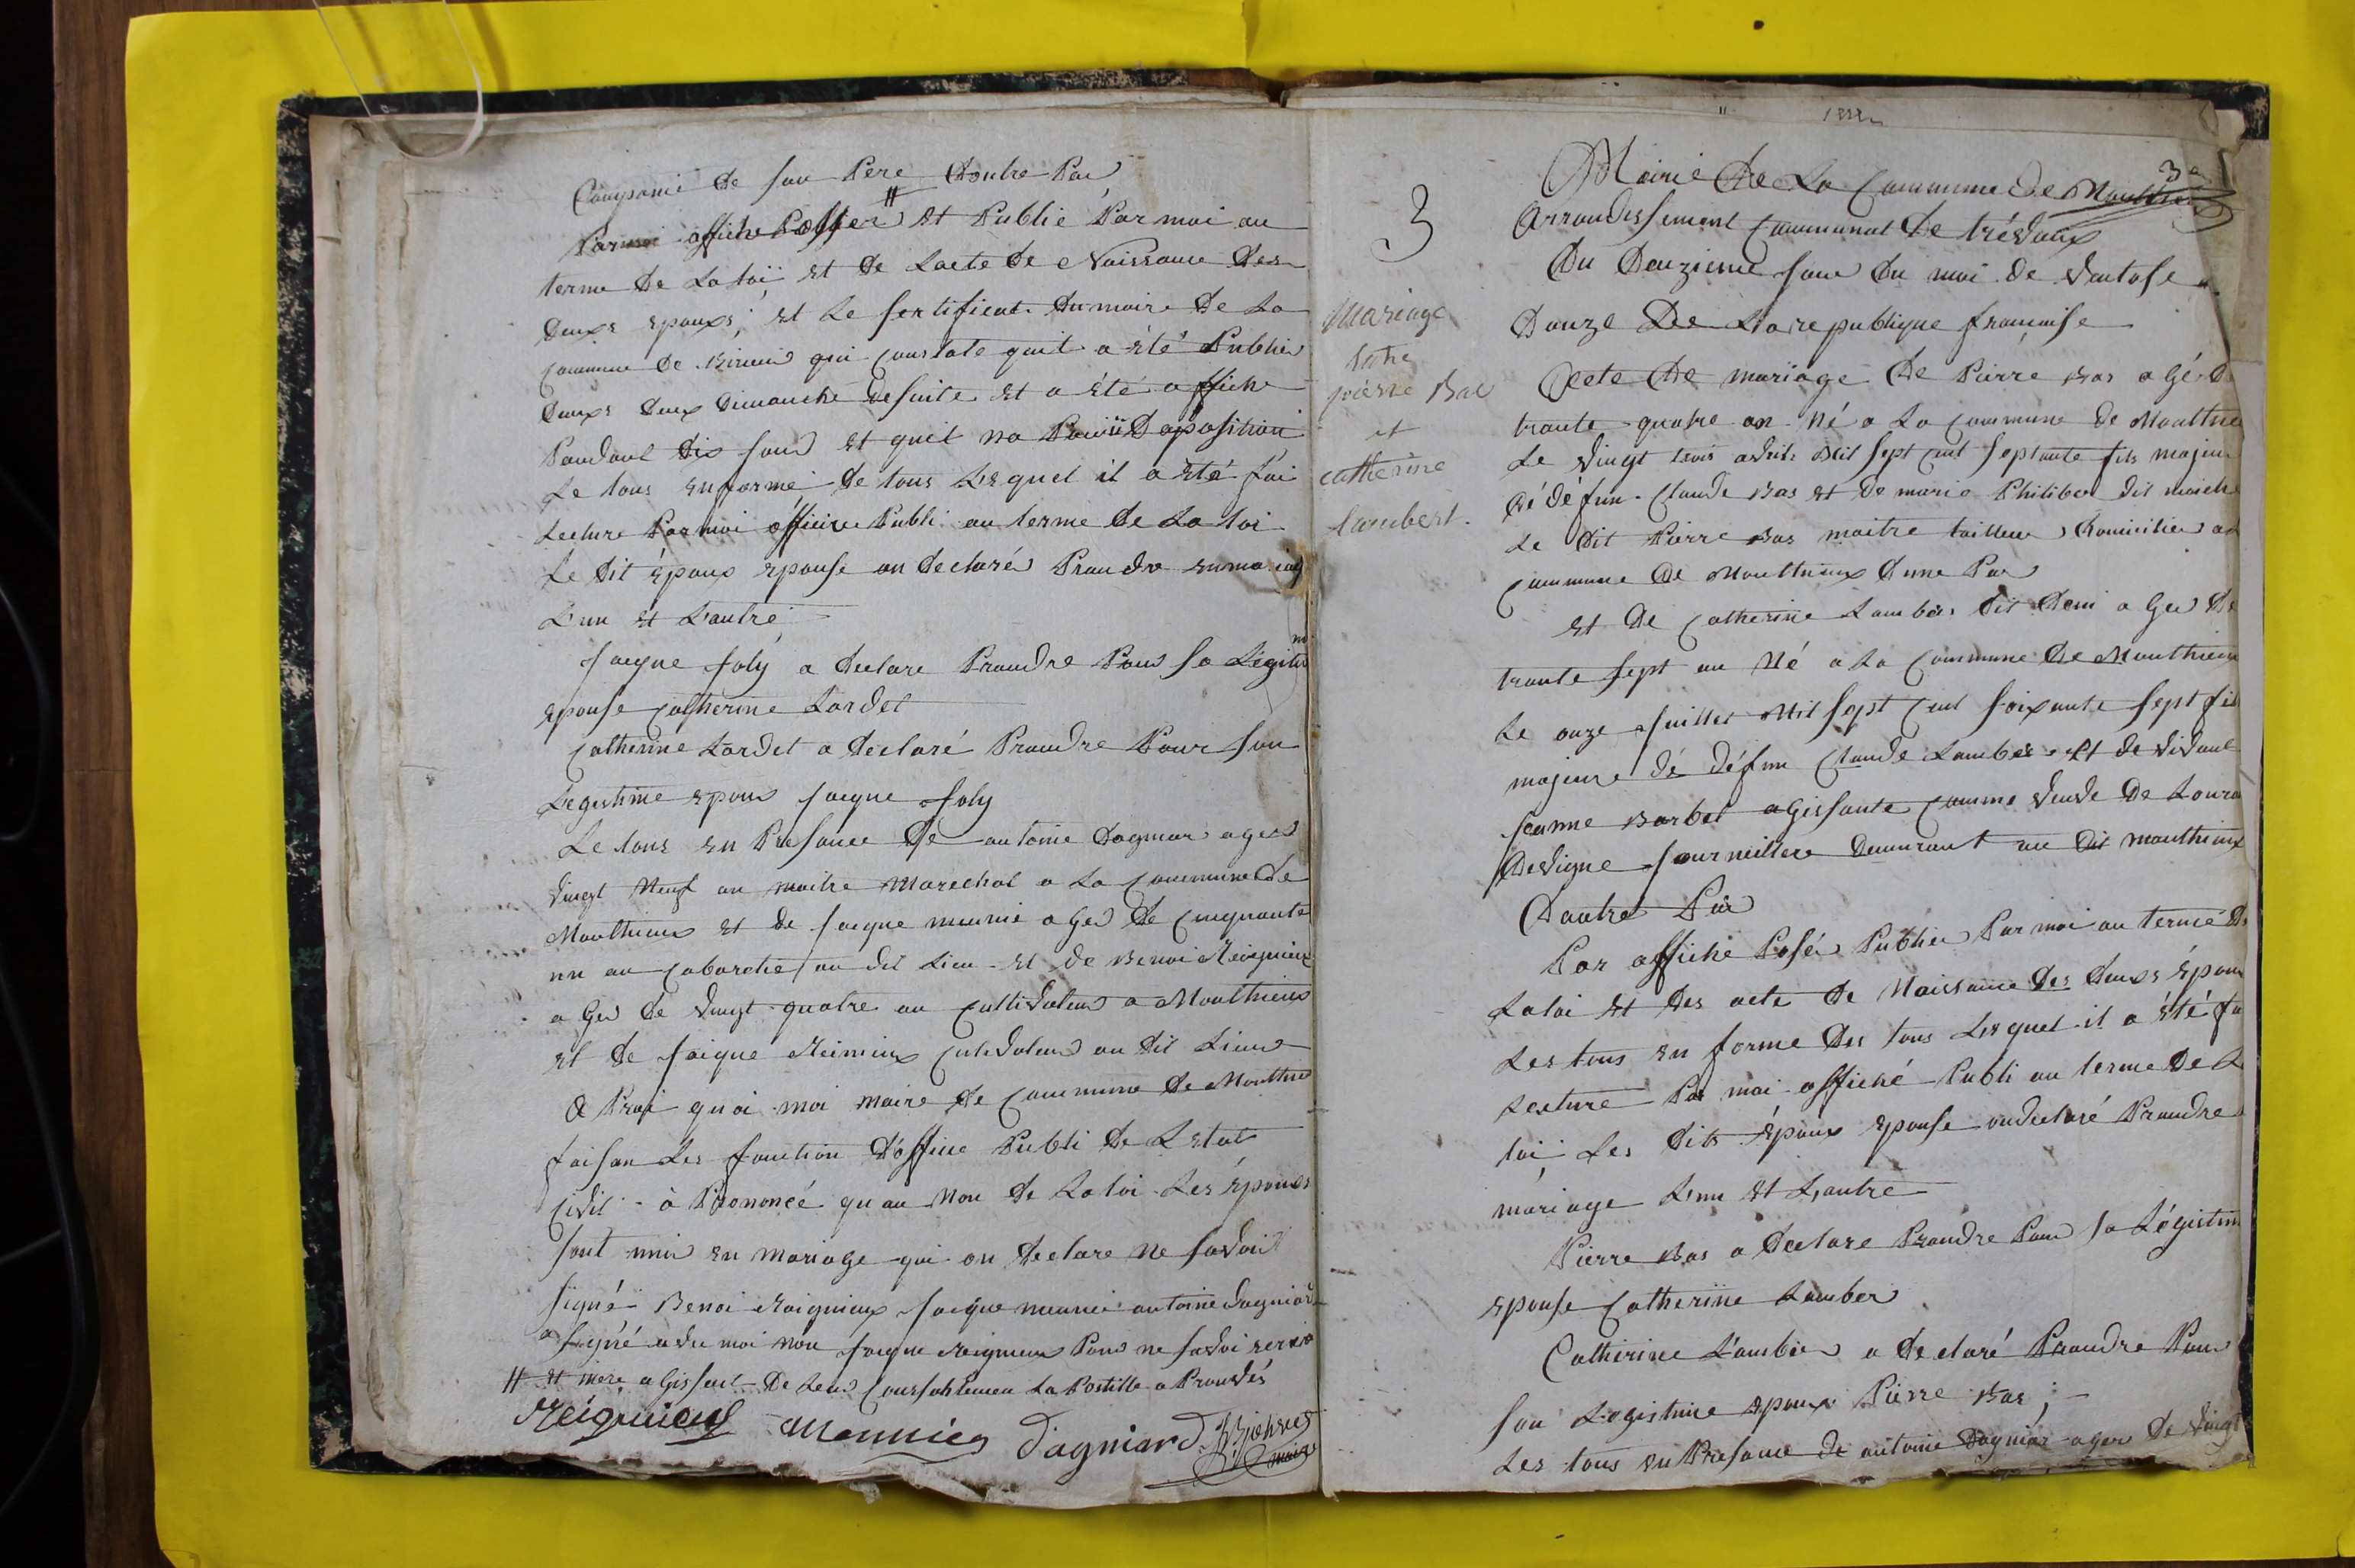 Companie de son Pere Doutre Par
Par moi affiche Posser et Publié Par moi au
terme de La loi et de Lacte de Naissance des
deuxs epouxs, et Le sertificat du maire de La
commune de qui constate quil a été Publier
deuxs deux dimanche desuite et a été affiche
Pandant dix jour et quil na Poin Doposition
Le tous enforme de tous Lesquel il a été fai
Lecture Par moi officire Publi au terme de La loi
Le dit épouxs epouse on declaré Prandre enmariag
L'un et L'autre
Jacque Joly a declare Prandre Pour sa Légiti
epouse Catherine Lardet
Catherine Lardet a declaré Prandre Pour son
Legestime epoux Jacque Joly
Le tous en Presance de antoine Dagniar ager
vingt neuf an maitre Marechal a La Commune de
Monthieux et de Jacque meunié ager de cinquante
un an cabaretie au dit Lieu et de Benoi Reignieux
ager de vingt quatre an cultivateur a Monthieux
et de Jacque Reinieux cultivateur au dit Lieux
A Prai quoi moi maire de Commune de Monthieu
faisan Les fonction d'office Publi de L'etat
Civil à Prononcé quau Non de La loi Les épouxs
sont unis en mariage qui on declare ne savoir
signé Benoi Raignieux Jacque meunié antoine dagniar
a signé avec moi non Jacque Reignieux Pour ne savoi
# et mere agissant de Leur Consantemen La Postille a Prouvés
Reignieux Meunier Dagniard
maire
3
Mariage
entre
pierre Bas
et
catherine
Lambert.
3e
Mairie De La Commune de Monthieux
Arrondissement Communal de trévoux
Du Douzieme jour Du moi de Ventose
Douze De La republique francaise
Acte De mariage De Pierre Bas agér De
trante quatre an Né a La Commune de Monthieu
Le vingt trois avril Mil sept cent septante fils majeu
dé défun Claude Bas et de marie Philiber dit moiche
Le dit Pierre Bas maitre tailleur domicilier a
Commune de Monthieux d'une Par
et de Catherine Lamber dit Deni ager de
trante sept an Né a La Commune de Monthieux
Le onze Juillet Mil sept cent soixante sept fil
majeure dé défun Claude Lamber et de vivant
Jeanne Barbet agissante comme veuve de
Journeillere demurant au dit monthieux
Dautre Par
Par affiche Poser Publier Par moi au terme de
La loi et des acte de Naissance des deuxs Epoux
Les tous en forme des tous Lesquel il a été fa
Lecture Par moi affiché Publi au terme de L
loi Les dits épouxs epouse on declaré Prandre
mariage L'un et L'autre
Pierre Bas a declare Prandre Pour sa Légistim
epouse Catherine Lamber
Catherine Lamber a declaré Prandre Pour
son Legistime epoux Pierre Bas ;
Les tous en Presance de antoine Dagniar ager de vingt